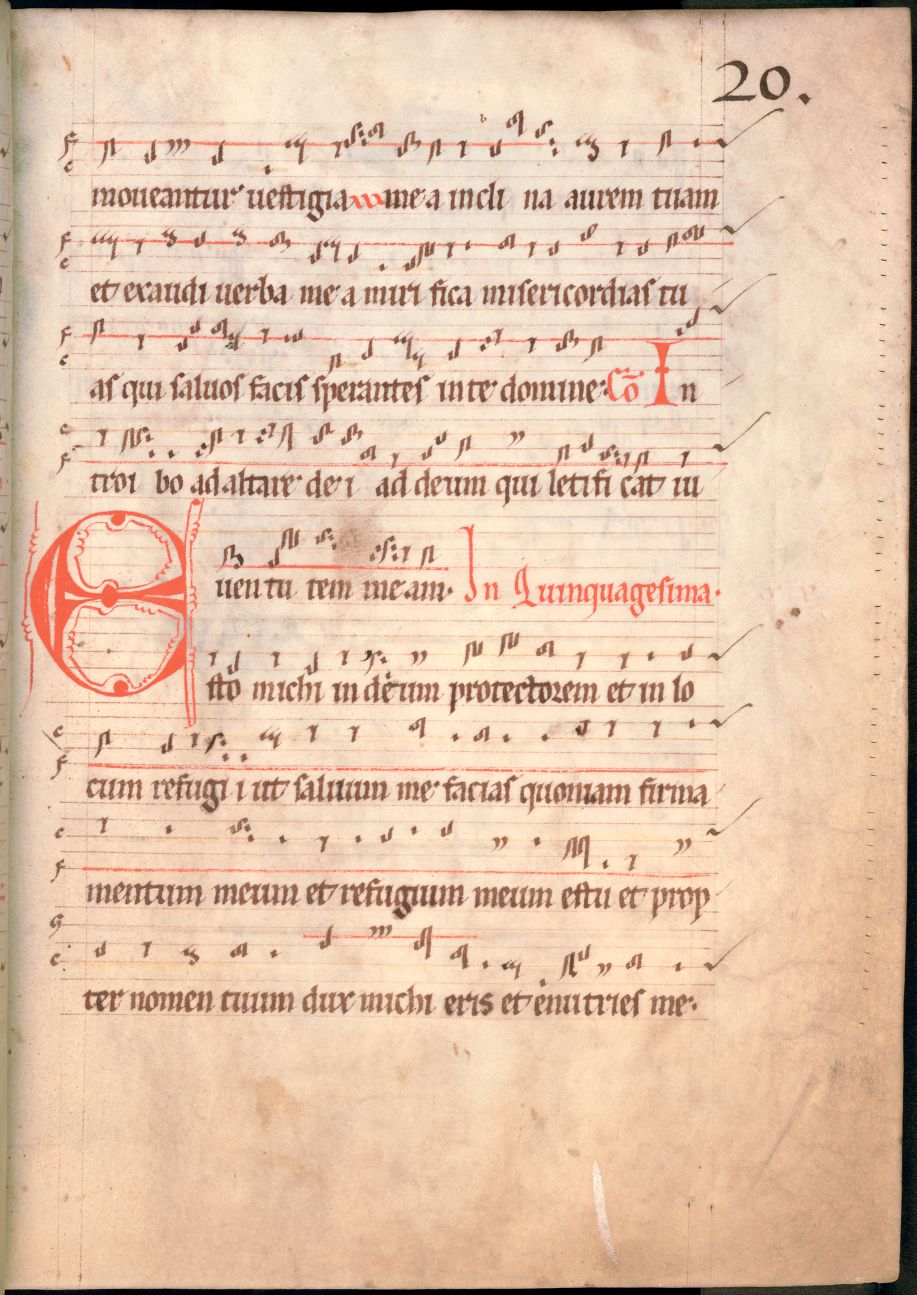 20.
moueantur uestigia mea incli na aurem tuam
et exaudi uerba mea miri fica misericordias tu
as qui saluos facis sperantes in te domine. Cō In
troi bo ad altare dei ad deum qui letifi cat iu
uentu tem meam. In Quinquagesima.
Esto michi in deum protectorem et in lo
cum refugi i ut saluum me facias quoniam firma
mentum meum et refugium meum es tu et prop
ter nomen tuum dux michi eris et enutries me.